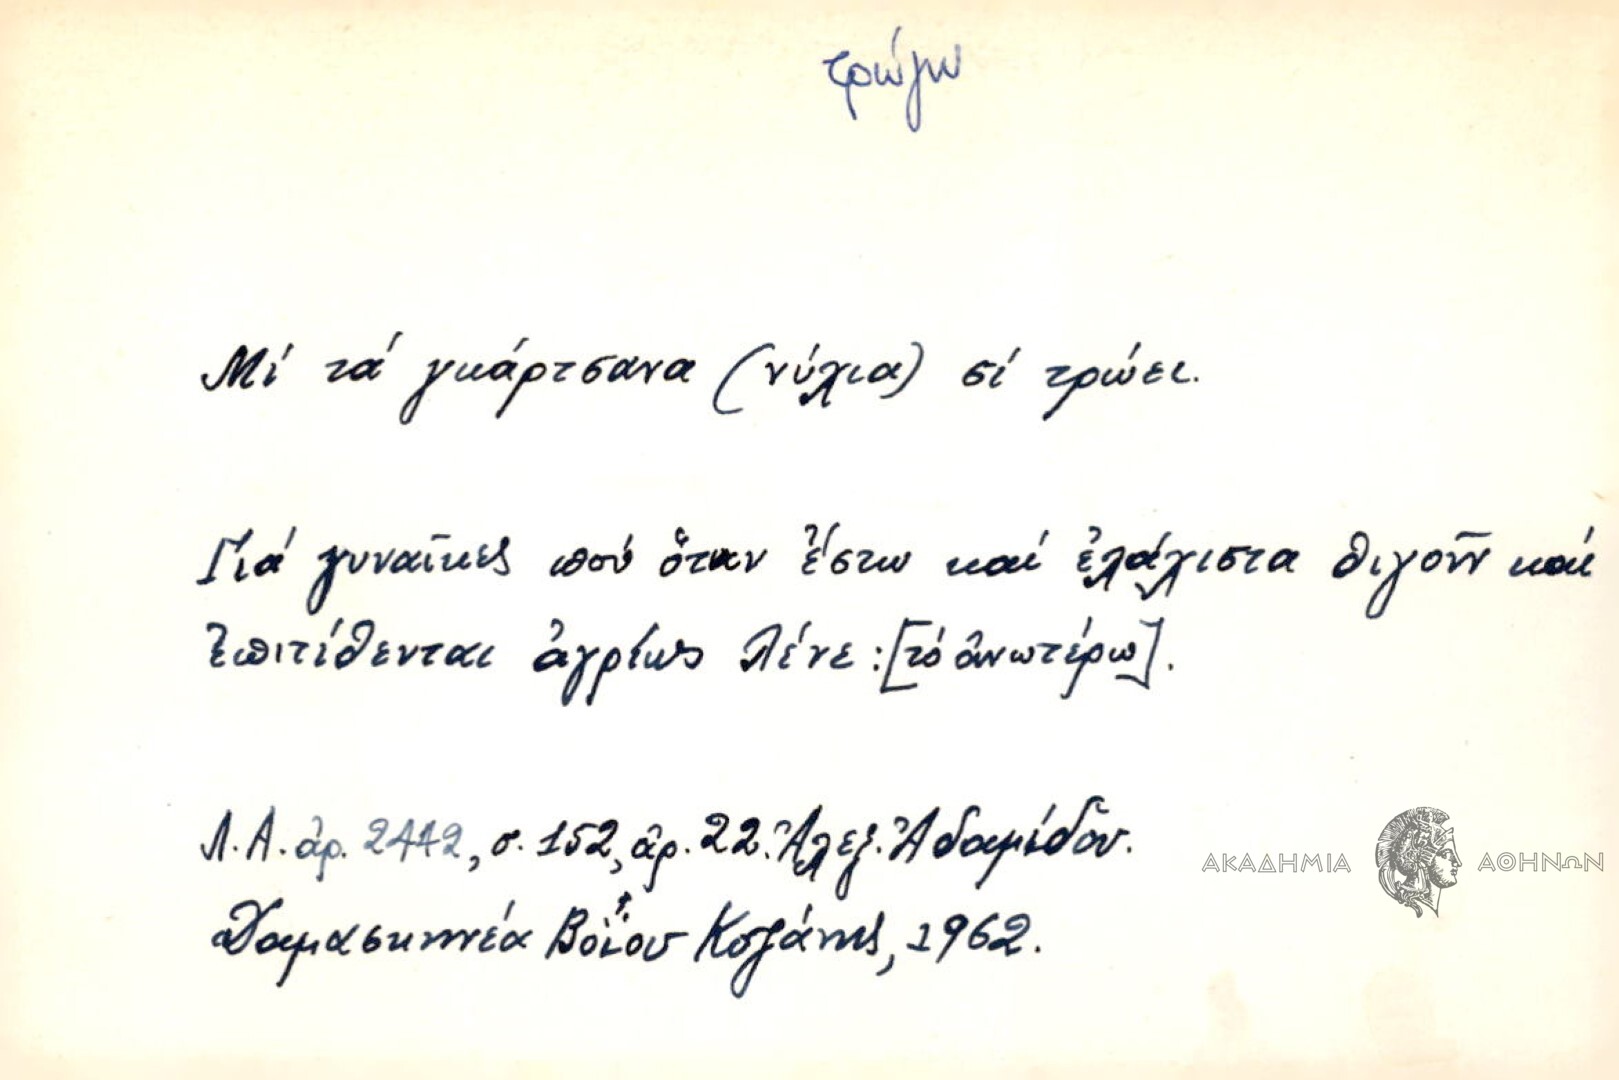 τρώγω
Μί τά γκάρτσανα (νύχια) σί τρώει.
Γιά γυναῖκες πού ὅταν ἔστω καί ἐλάχιστα θιγοῦν καί
ἐπιτίθενται ἀγρίως λένε: [τό ἀνωτέρω].
Λ.Α. ἀρ. 2442, σ. 152, ἀρ. 22. Ἀλεξ. Ἀδαμίδου.
Δαμασκηνέα Βοΐου Κοζάνης, 1962.
ΑΚΑΔΗΜΙΑ ΑΘΗΝΩΝ